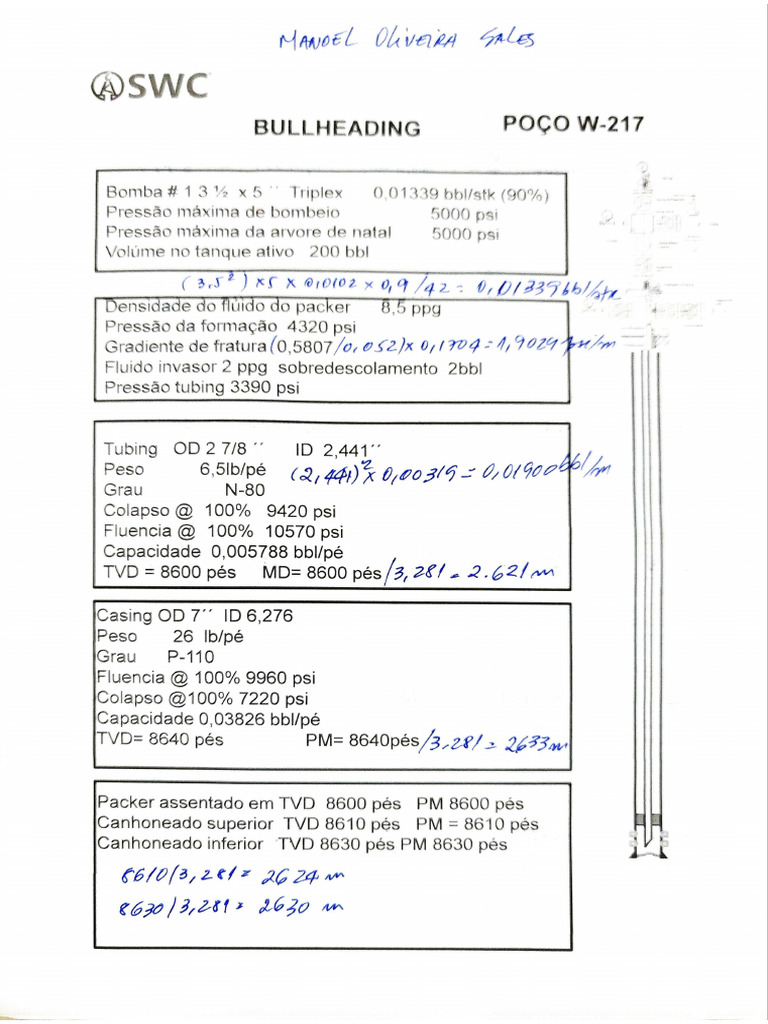 MANOEL OLIVEIRA SALES
SWC
BULLHEADING POÇO W-217
Bomba # 1 3 ½ x 5 ´´ Triplex 0,01339 bbl/stk (90%)
Pressão máxima de bombeio 5000 psi
Pressão máxima da arvore de natal 5000 psi
Volúme no tanque ativo 200 bbl
(3,5²) x 5 x 0,0102 x 0,9 / 42 = 0,01339 bbl/stk
Densidade do fluido do packer 8,5 ppg
Pressão da formação 4320 psi
Gradiente de fratura (0,5807/0,052) x 0,1704 = 1,9029 psi/m
Fluido invasor 2 ppg sobredescolamento 2bbl
Pressão tubing 3390 psi
Tubing OD 2 7/8 ´´ ID 2,441´´
Peso 6,5lb/pé (2,441)² x 0,00319 = 0,01900 bbl/m
Grau N-80
Colapso @ 100% 9420 psi
Fluencia @ 100% 10570 psi
Capacidade 0,005788 bbl/pé
TVD = 8600 pés MD= 8600 pés /3,281 = 2.621 m
Casing OD 7´´ ID 6,276
Peso 26 lb/pé
Grau P-110
Fluencia @ 100% 9960 psi
Colapso @100% 7220 psi
Capacidade 0,03826 bbl/pé
TVD= 8640 pés PM= 8640pés /3,281 = 2633 m
Packer assentado em TVD 8600 pés PM 8600 pés
Canhoneado superior TVD 8610 pés PM = 8610 pés
Canhoneado inferior TVD 8630 pés PM 8630 pés
8610/3,281 = 2624 m
8630/3,281 = 2630 m